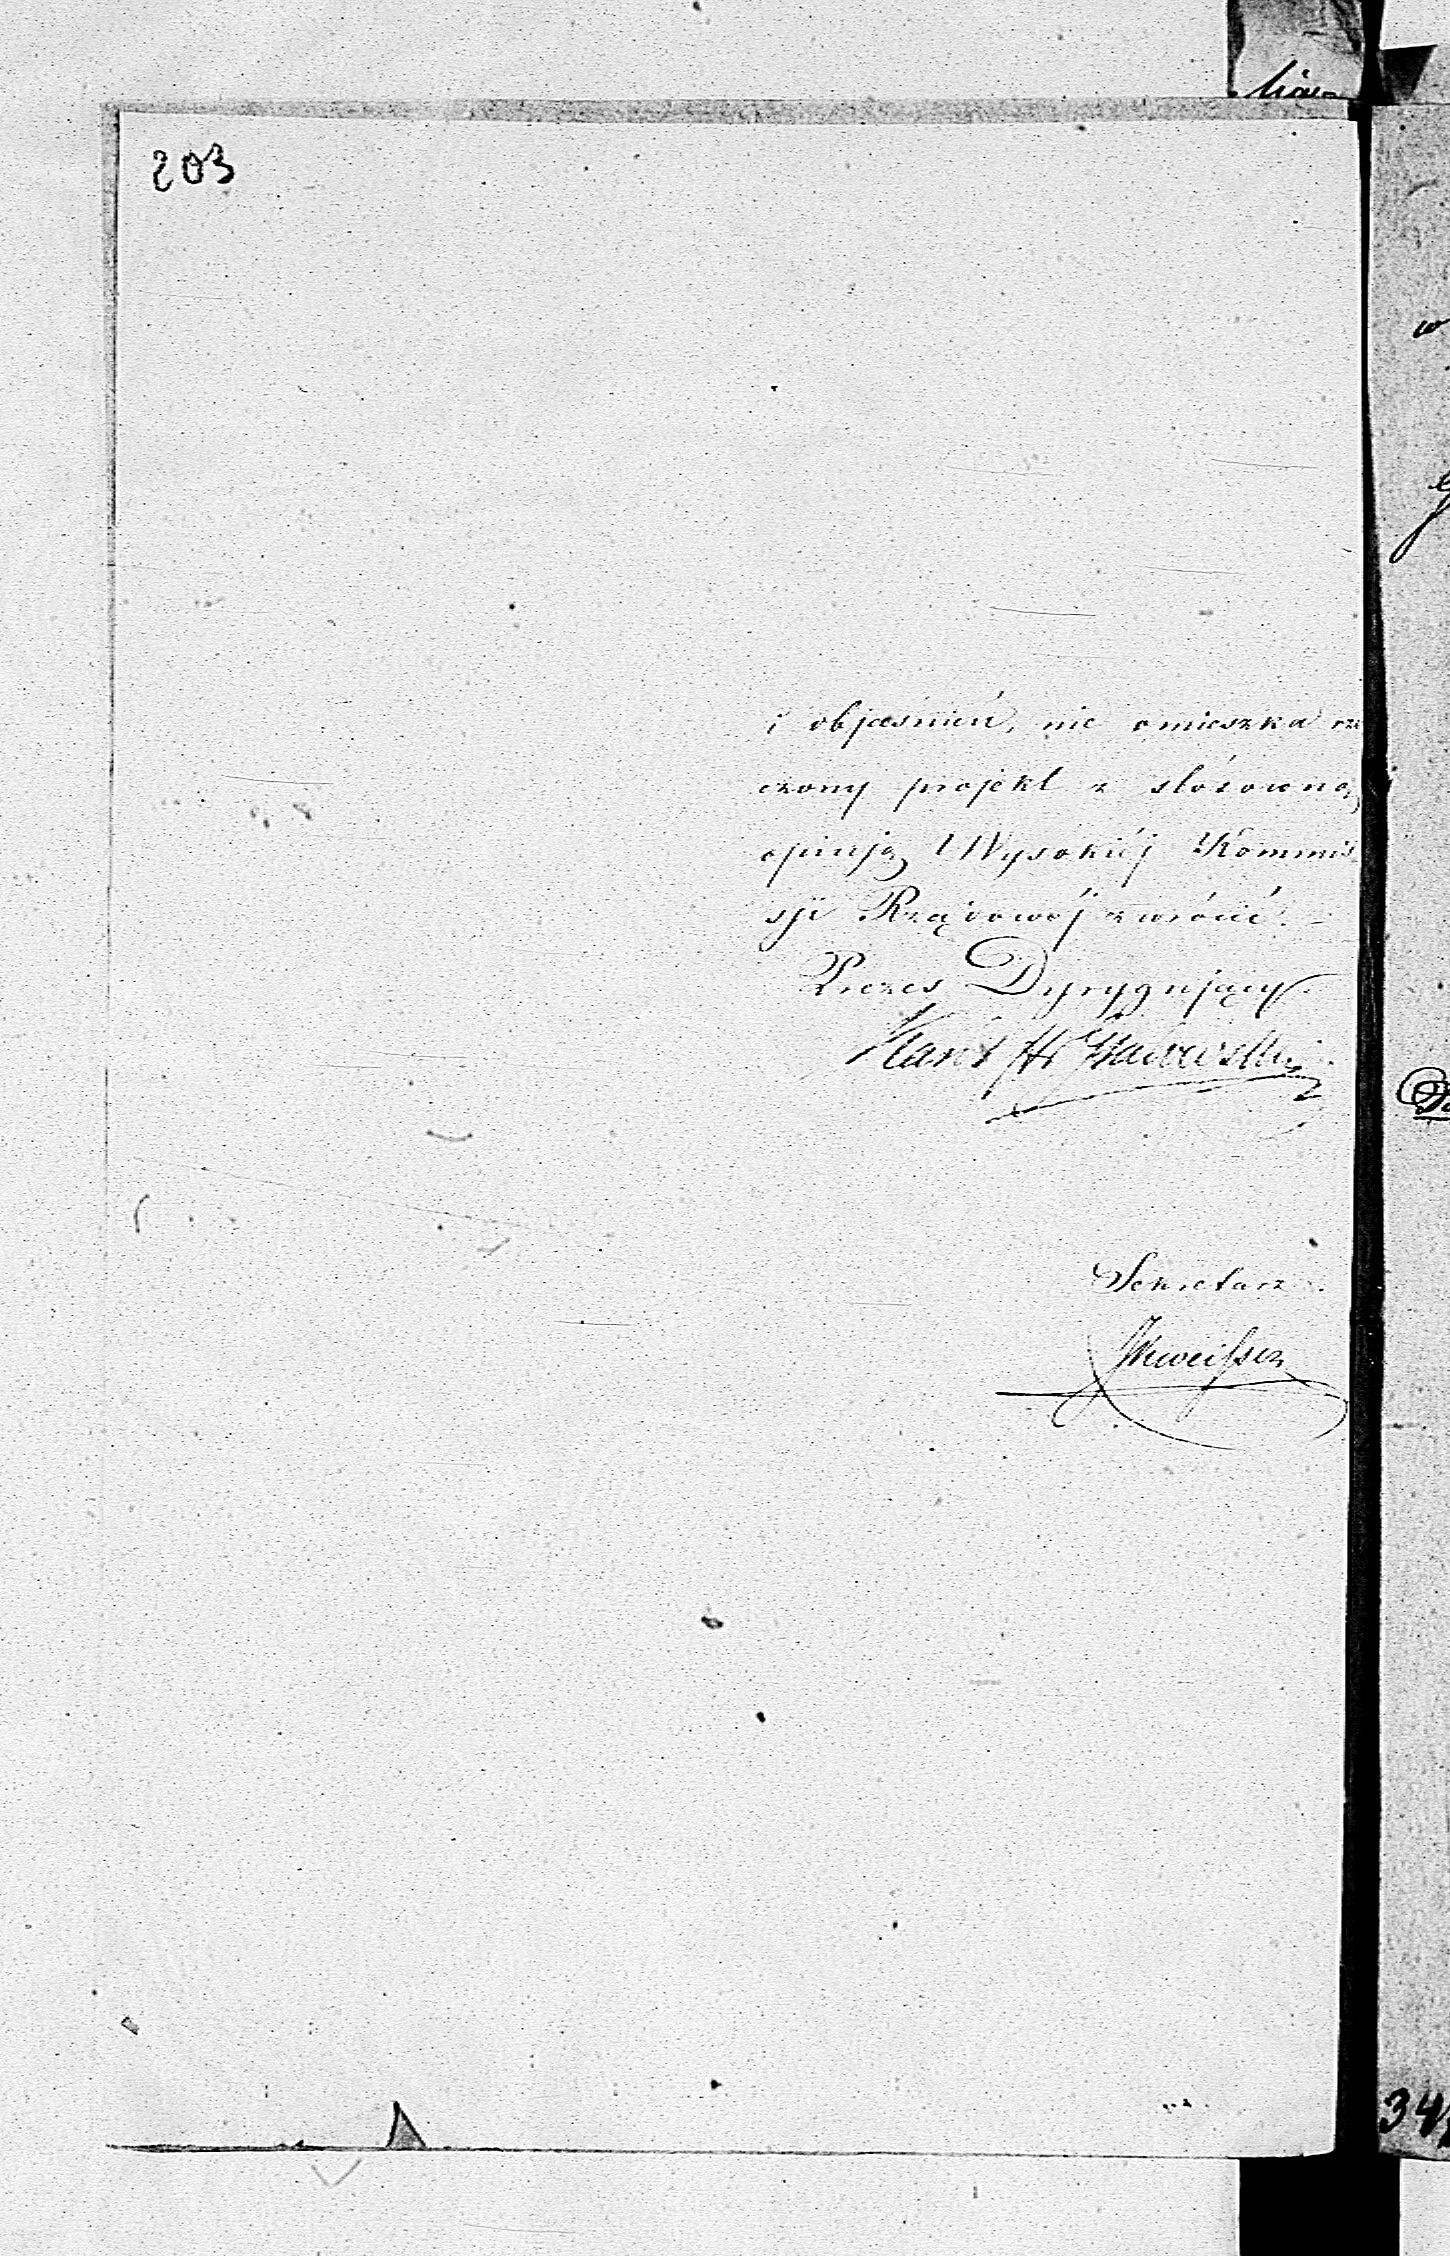 203
i objaśnień, nie omieszka rze
czony projekt z stósowną
opinją Wysokiéj Kommis
sji Rządowéj zwrócić. –
Prezes Dyrygujący
Sekretarz.
34